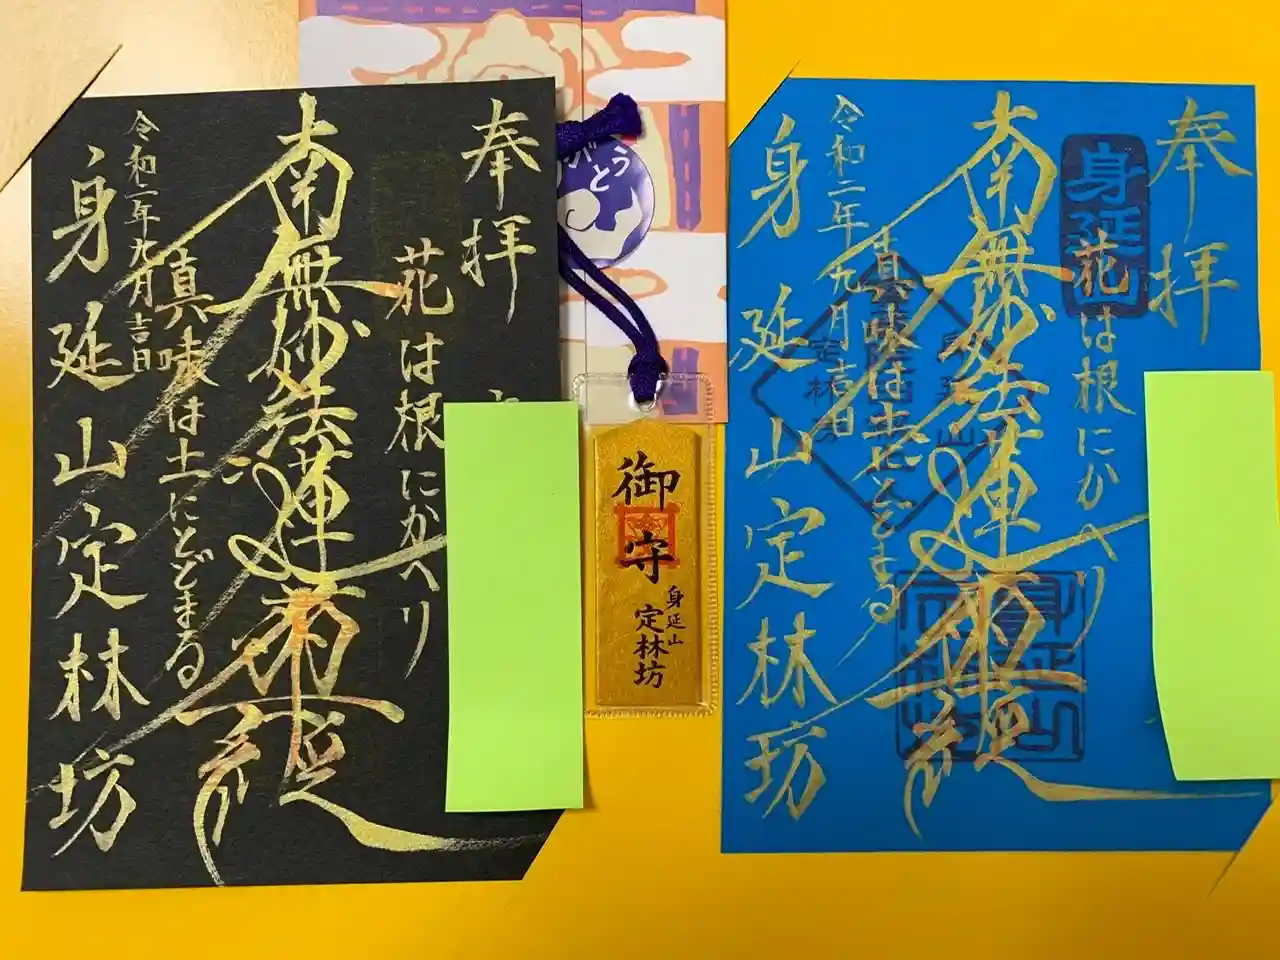 奉拝
花は根にかへり
南無妙法蓮華経
真味は土にとどまる
令和二年九月吉日
身延山定林坊
がとう
御守
身延山
定林坊
奉拝
身延山
花は根にかへり
南無妙法蓮華経
真味は土にとどまる
令和二年九月吉日
身延山定林坊